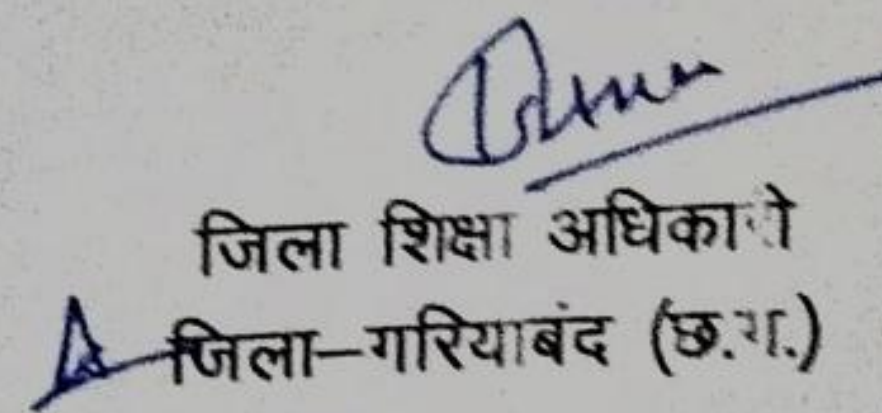 जिला शिक्षा अधिकारी
जिला-गरियाबंद (छ.ग.)